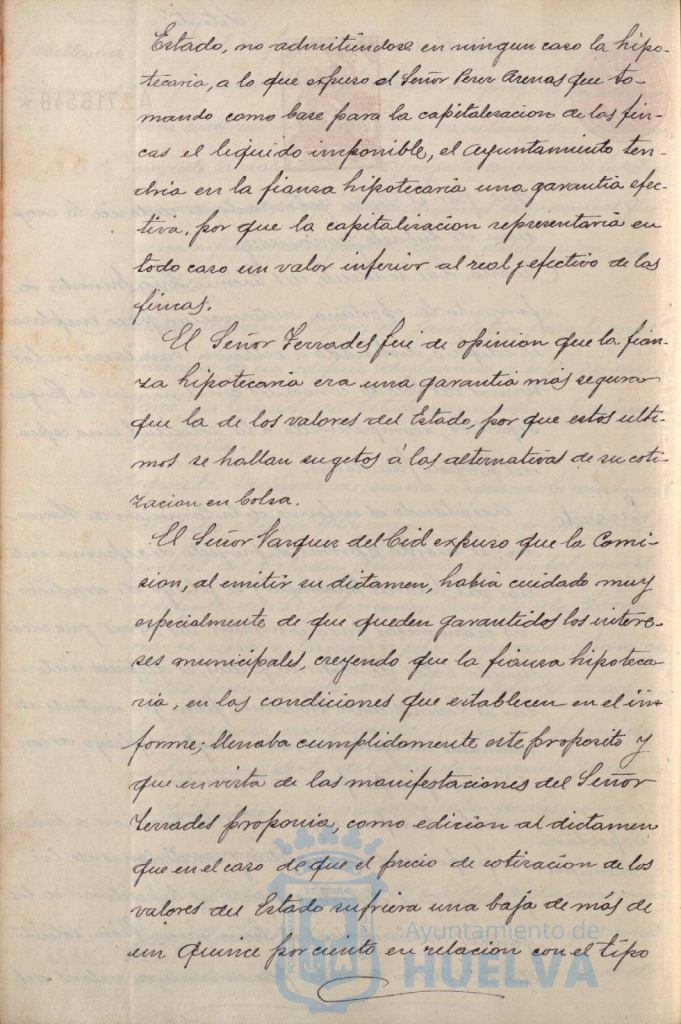 Estado, no admitiendose en ningun caso la hipo-
tecaria, a lo que expuso el Señor Perez Arenas que to-
mando como base para la capitalizacion de las fin-
cas el liquido imponible, el Ayuntamiento ten-
dria en la fianza hipotecaria una garantia efec-
tiva, por que la capitalizacion representaria en
todo caso un valor inferior al real y efectivo de las
fincas.
El Señor Terrades fué de opinion que la fian-
za hipotecaria era una garantia más segura
que la de los valores del Estado, por que estos ulti-
mos se hallan sugetos á las alternativas de su coti-
zacion en bolsa.
El Señor Vazquez del Cid expuso que la Comi-
sion, al emitir su dictamen, habia cuidado muy
especialmente de que queden garantidos los intere-
ses municipales, creyendo que la fianza hipoteca
ria, en las condiciones que establecen en el in-
forme; llenaba cumplidamente este proposito y
que en vista de las manifestaciones del Señor
Terrades proponia, como edicion al dictamen
que en el caso de que el precio de cotizacion de los
valores del Estado sufriera una baja de más de
un quince por ciento en relacion con el tipo
Ayuntamiento de
HUELVA